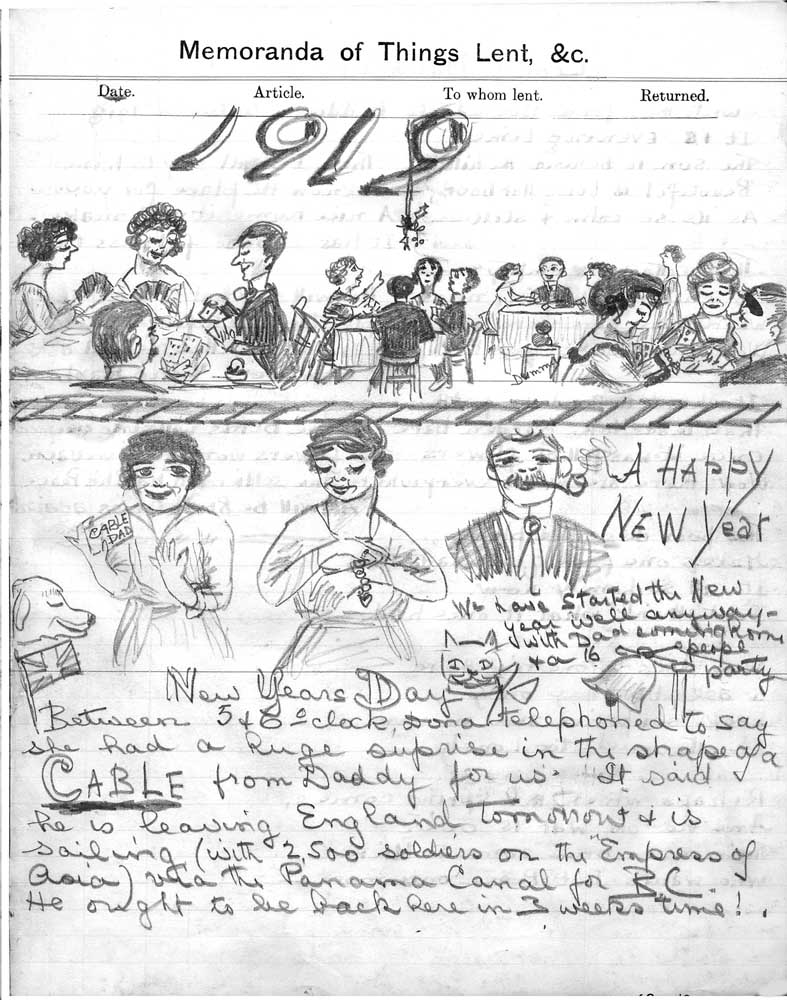 Memoranda of Things Lent, &c.
Date. Article. To whom lent. Returned.
1919
Dummy
CABLE
DAD
A HAPPY
NEW Year
We have started the New
year well anyway-
with Dad coming home
& a 16 people
party
New Years Day
Between 5 & 6 o'clock, Sona telephoned to say
she had a huge suprise in the shape of a
CABLE from Daddy for us. It said
he is leaving England tomorrow & is
sailing (with 2,500 soldiers on the "Empress of
Asia) via the Panama Canal for B.C.
He ought to be back here in 3 weeks time!.